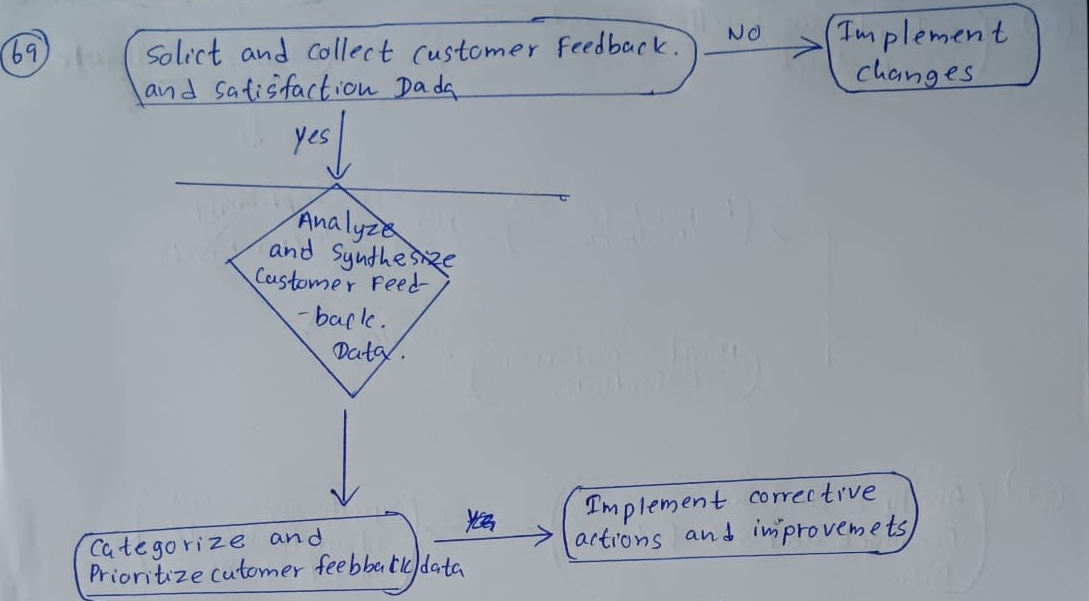 69
Solict and collect customer Feedback.
and Satisfaction Dada
NO
Implement
changes
yes
Analyze
and Synthesize
Customer Feed-
-back.
Data.
Categorize and
Prioritize cutomer feebback data
Implement corrective
actions and improvemets